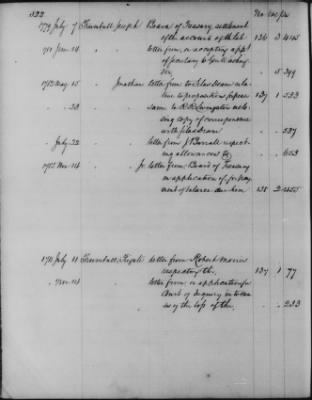 322
No vol pa
1779 July 7 Trumbull Joseph Board of Treasury settlement
of the account of the late 136 3 415
1781 June 14 letter from, on accepting app't
of secretary to
5 399
1782 May 15 Jonathan letter from to Silas Deane rela-
tive to propositions 137 1 523
" 20 same to R R Livingston enclo-
sing copy of correspondence
with Silas Deane " 527
July 22 letter from J Borrall respect-
ing allowances to " 653
1785 Nov 14 Jr letter from Board of Treasury
on application of, for pay-
ment of balance due him 138 2 455
1781 July 11 Trumbull Royal letter from Robert Morris
respecting the. 137 1 77
" Nov 14 letter from, on application for
Court of Enquiry into cau-
ses of the loss of the. " 233